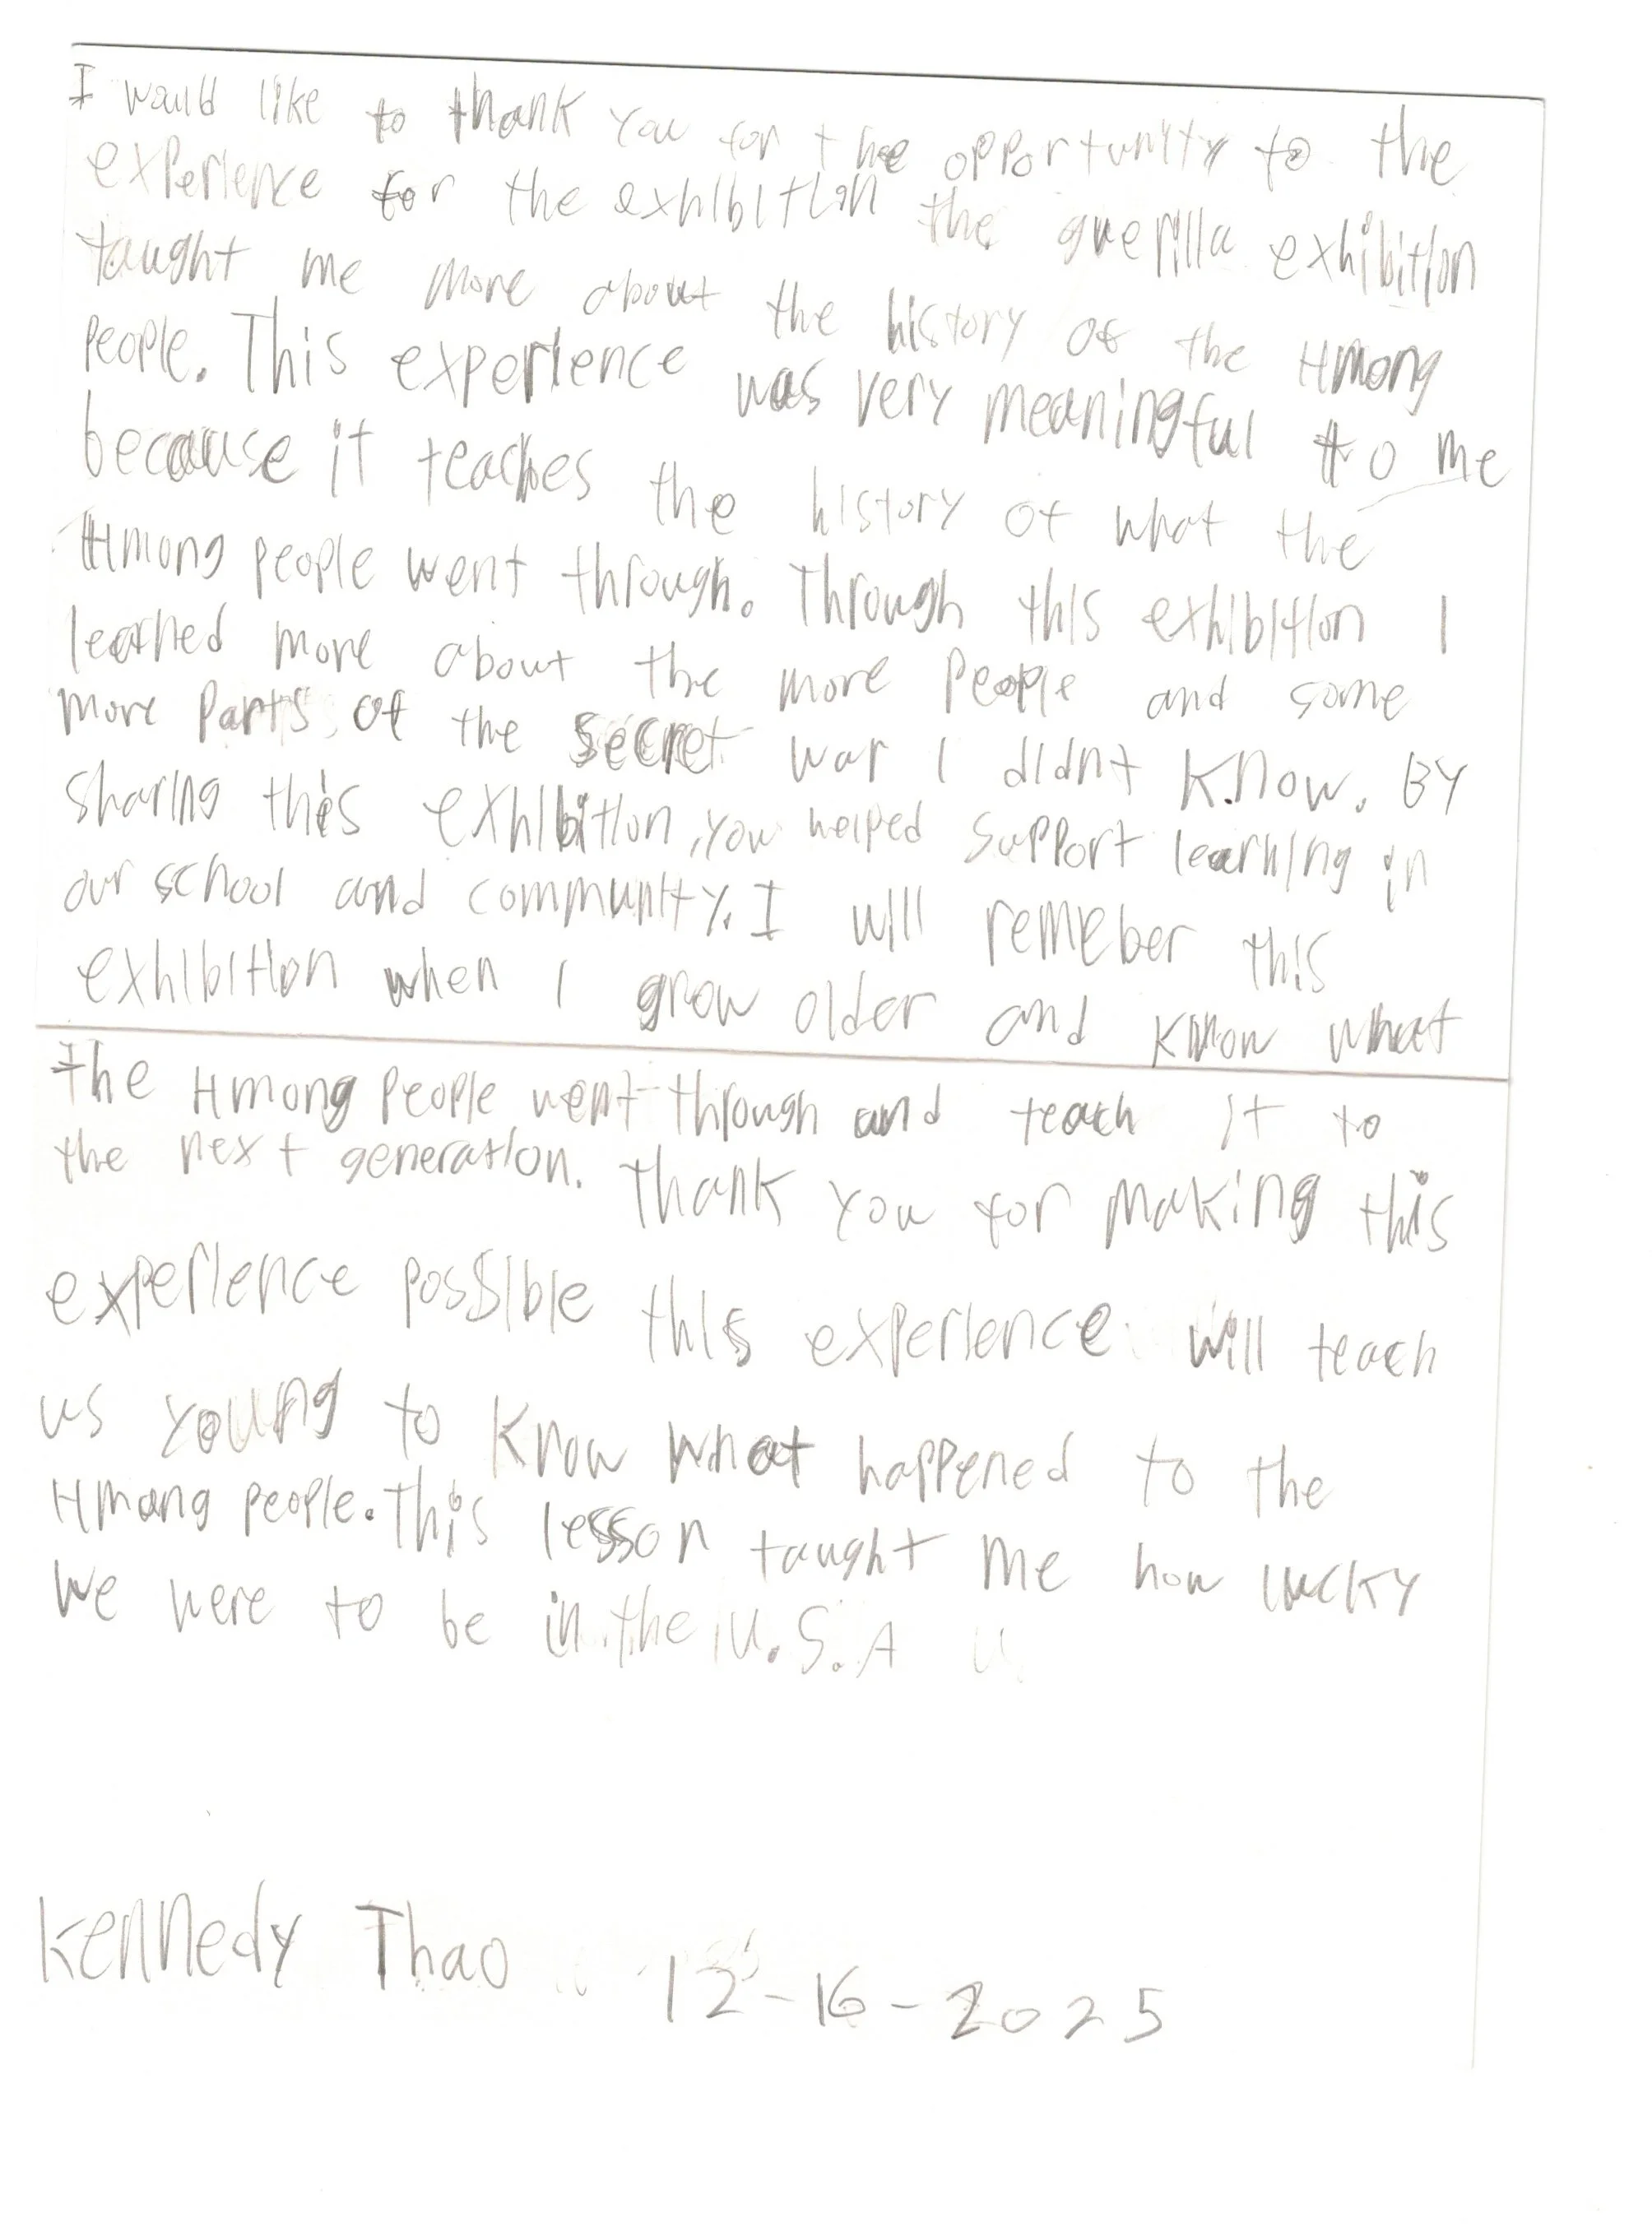 I would like to thank you for the opportunity to the
experience for the exhibition the guerilla exhibition
taught me more about the history of the Hmong
People. This experience was very meaningful to me
because it teaches the history of what the
Hmong people went through. Through this exhibition I
learned more about the more People and some
more Parts of the secret war I didnt Know. BY
sharing this exhibition, you helped support learning in
our school and community. I will remeber this
exhibition when I grow older and know what
the Hmong People went through and teach it to
the next generation. Thank you for making this
experience possible this experience will teach
us young to know what happened to the
Hmong people. This lesson taught me how lucky
we were to be in the U.S.A
Kennedy Thao 12-16-2025